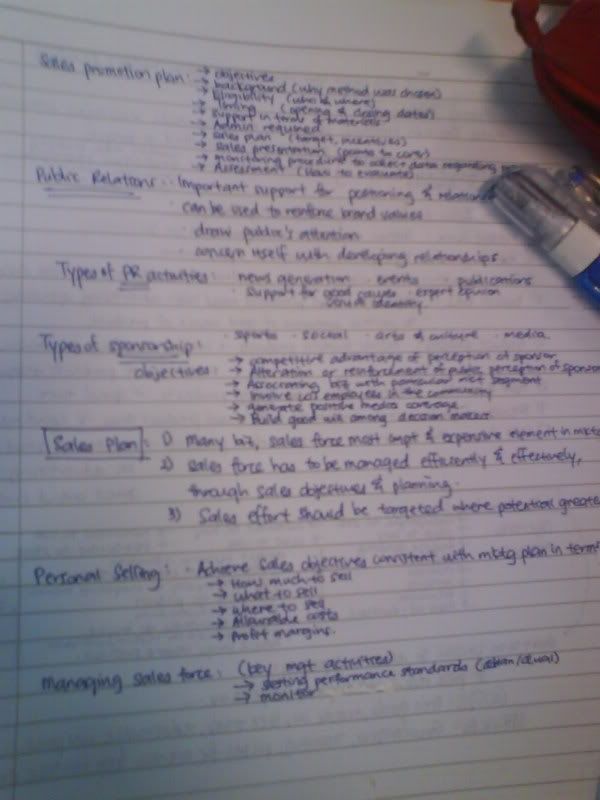 Sales promotion plan: → objectives
→ background (why method was chosen)
→ Eligibility (who & where)
→ Timing (opening & closing dates)
→ support in terms of materials
→ Admin required
→ sales plan (target, incentives)
→ sales presentation (points to cover)
→ monitoring procedure to collect data regarding
→ Assessment (how to evaluate)
Public Relations: · Important support for positioning &
· can be used to reinforce brand values
· draw public's attention
· concern itself with developing relationships.
Types of PR activities: · news generation · events · publications
· support for good causes · expert opinion
· visual identity
Types of sponsorship: · sports · social · arts & culture · media
objectives: → competitive advantage of perception of sponsor
→ Alteration or reinforcement of public perception of sponsor
→ Associating biz with particular mkt segment
→ Involve co's employees in the community
→ generate positive media coverage
→ Build good will among decision makers
Sales Plan: 1) Many biz, sales force most impt & expensive element in
2) sales force has to be managed efficiently & effectively,
through sales objectives & planning.
3) Sales effort should be targeted where potential
Personal Selling: · Achieve sales objectives consistent with mktg plan in
→ How much to sell
→ what to sell
→ where to sell
→ Allowable costs
→ Profit margins.
Managing sales force: (key mgt activities)
→ setting performance standards
→ monitor